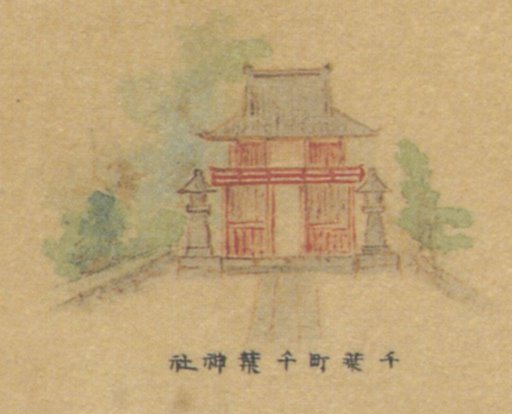 千葉町千葉神社